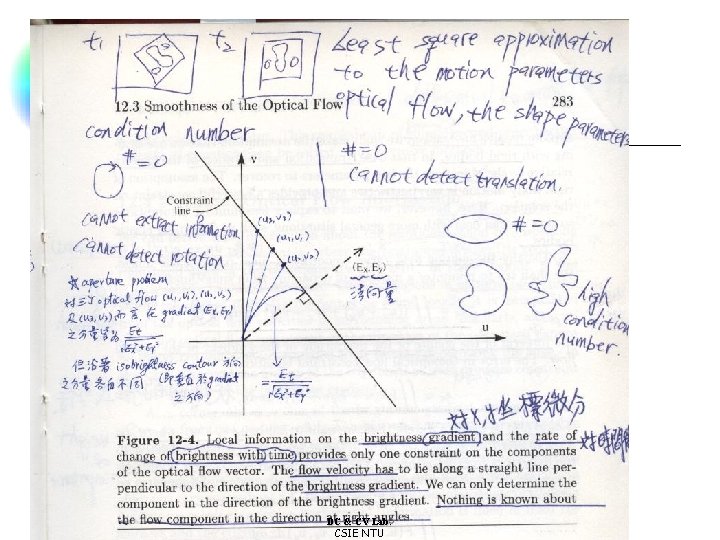 t1 t2 Least square approximation
to the motion parameters
12.3 Smoothness of the Optical Flow 283
optical flow, the shape parameters
condition number
#=0
#=0
cannot detect translation.
v
Constraint
line
(u3,v3)
(u1,v1)
(u2,v2)
cannot extract information
cannot detect rotation
#=0
(Ex, Ey)
aperture problem
optical flow (u1,v1),(u2,v2)
及(u3,v3)而言,在gradient(Ex,Ey)
之分量皆為 Et
√Ex²+Ey²
high
condition
number.
u
但沿著 isobrightness contour 方向
之分量各自不同 (即垂直於gradient
之方向)
= Et
√Ex²+Ey²
對 坐標微分
對時間
Figure 12-4. Local information on the brightness gradient and the rate of
change of brightness with time provides only one constraint on the components
of the optical flow vector. The flow velocity has to lie along a straight line per-
pendicular to the direction of the brightness gradient. We can only determine the
component in the direction of the brightness gradient. Nothing is known about
the flow component in the direction at right angles.
DC & CV Lab.
CSIE NTU